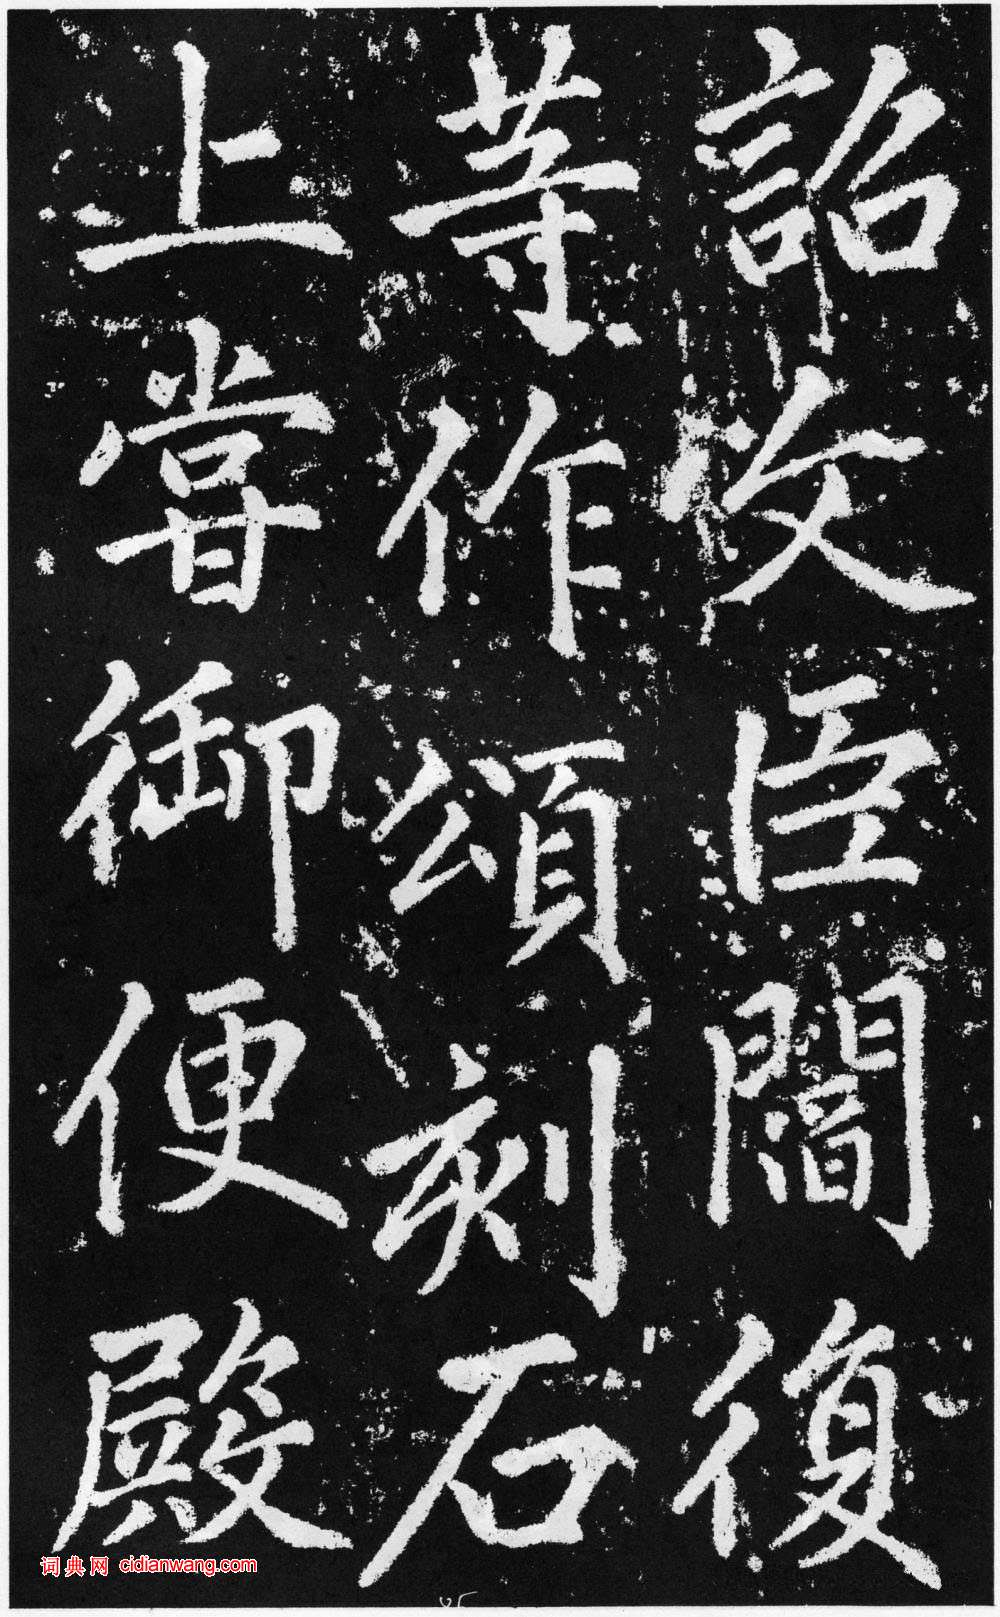 詔文臣闇復
等作頌刻石
上嘗御便殿
词典网 cidianwang.com